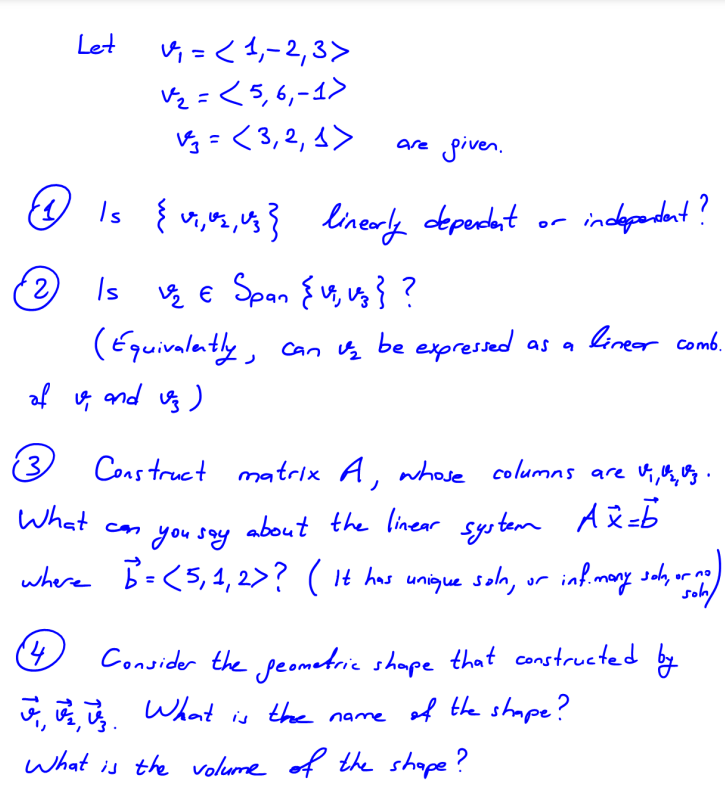 Let v₁ = < 1, -2, 3>
v₂ = < 5, 6, -1>
v₃ = < 3, 2, 1> are given.
① Is { v₁, v₂, v₃ } linearly dependent or independent?
② Is v₂ ∈ Span { v₁, v₃ } ?
(Equivalently, can v₂ be expressed as a linear comb.
of v₁ and v₃ )
③ Construct matrix A, whose columns are v₁, v₂, v₃ .
What can you say about the linear system A x⃗ = b⃗
where b⃗ = <5, 1, 2>? ( It has unique soln, or inf. many soln, or no soln)
④ Consider the geometric shape that constructed by
v⃗₁, v⃗₂, v⃗₃. What is the name of the shape?
What is the volume of the shape?